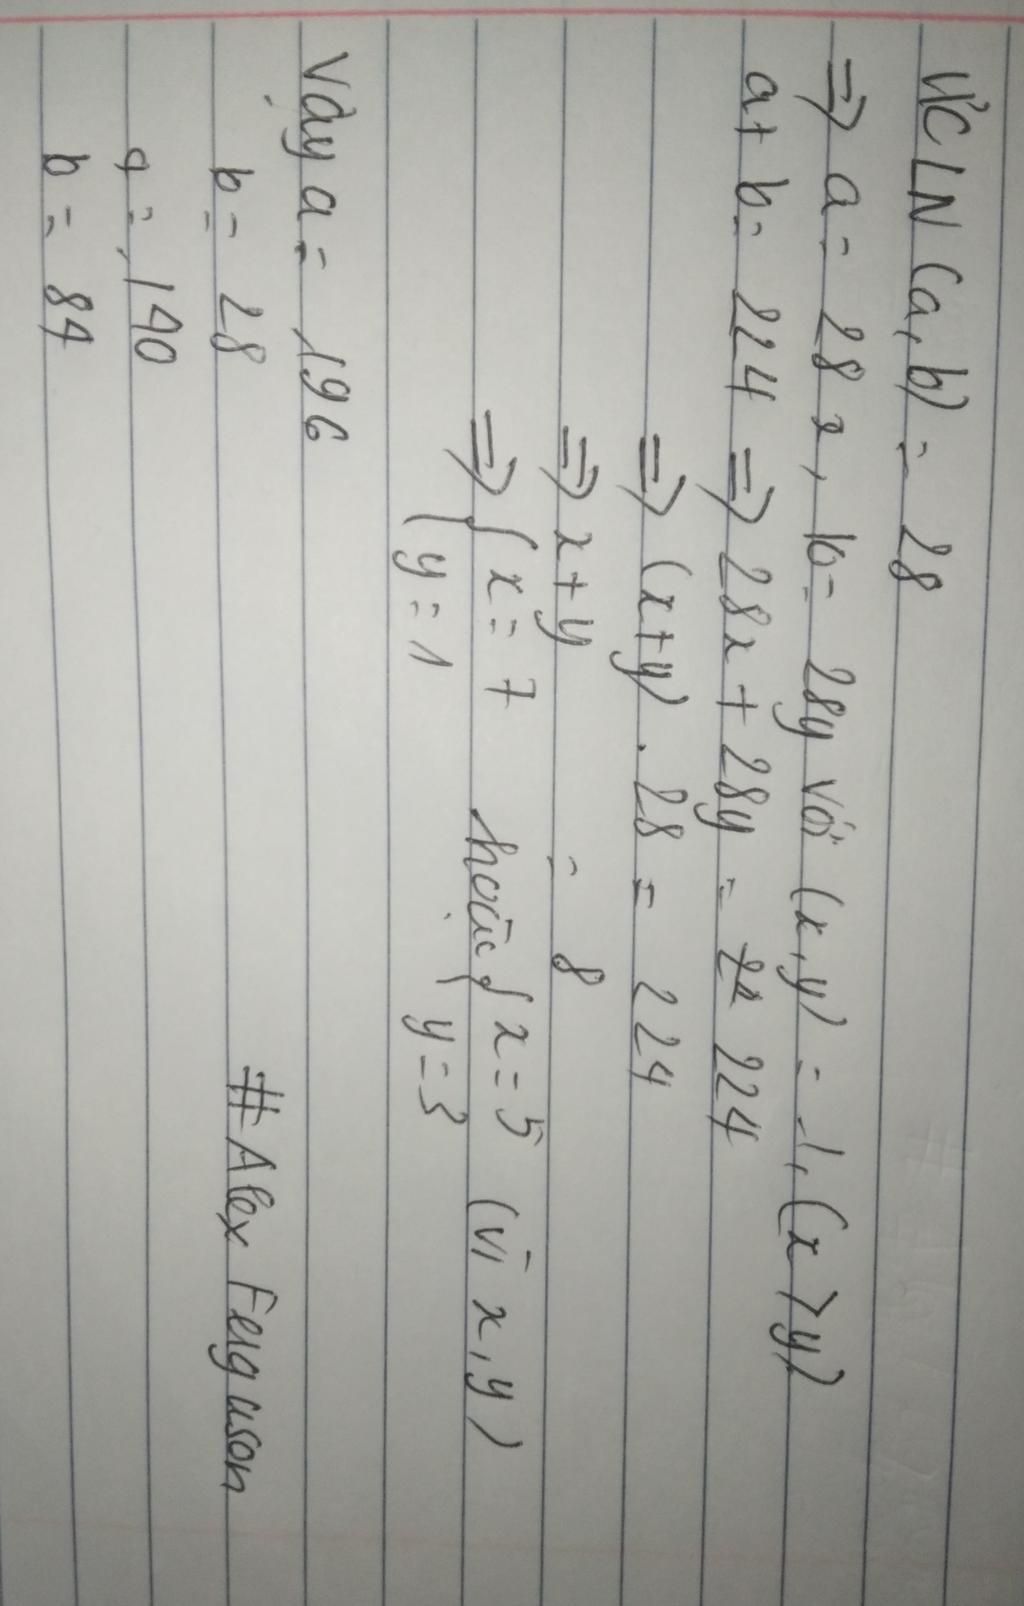 ƯCLN (a, b) = 28
=> a = 28x, b = 28y với (x, y) = 1, (x > y)
a + b = 224 => 28x + 28y = 224
=> (x + y) . 28 = 224
=> x + y = 8
=> { x = 7 hoặc { x = 5 (vì x, y)
{ y = 1 { y = 3
Vậy a = 196
b = 28
a = 140
b = 84
# Alex Ferguson